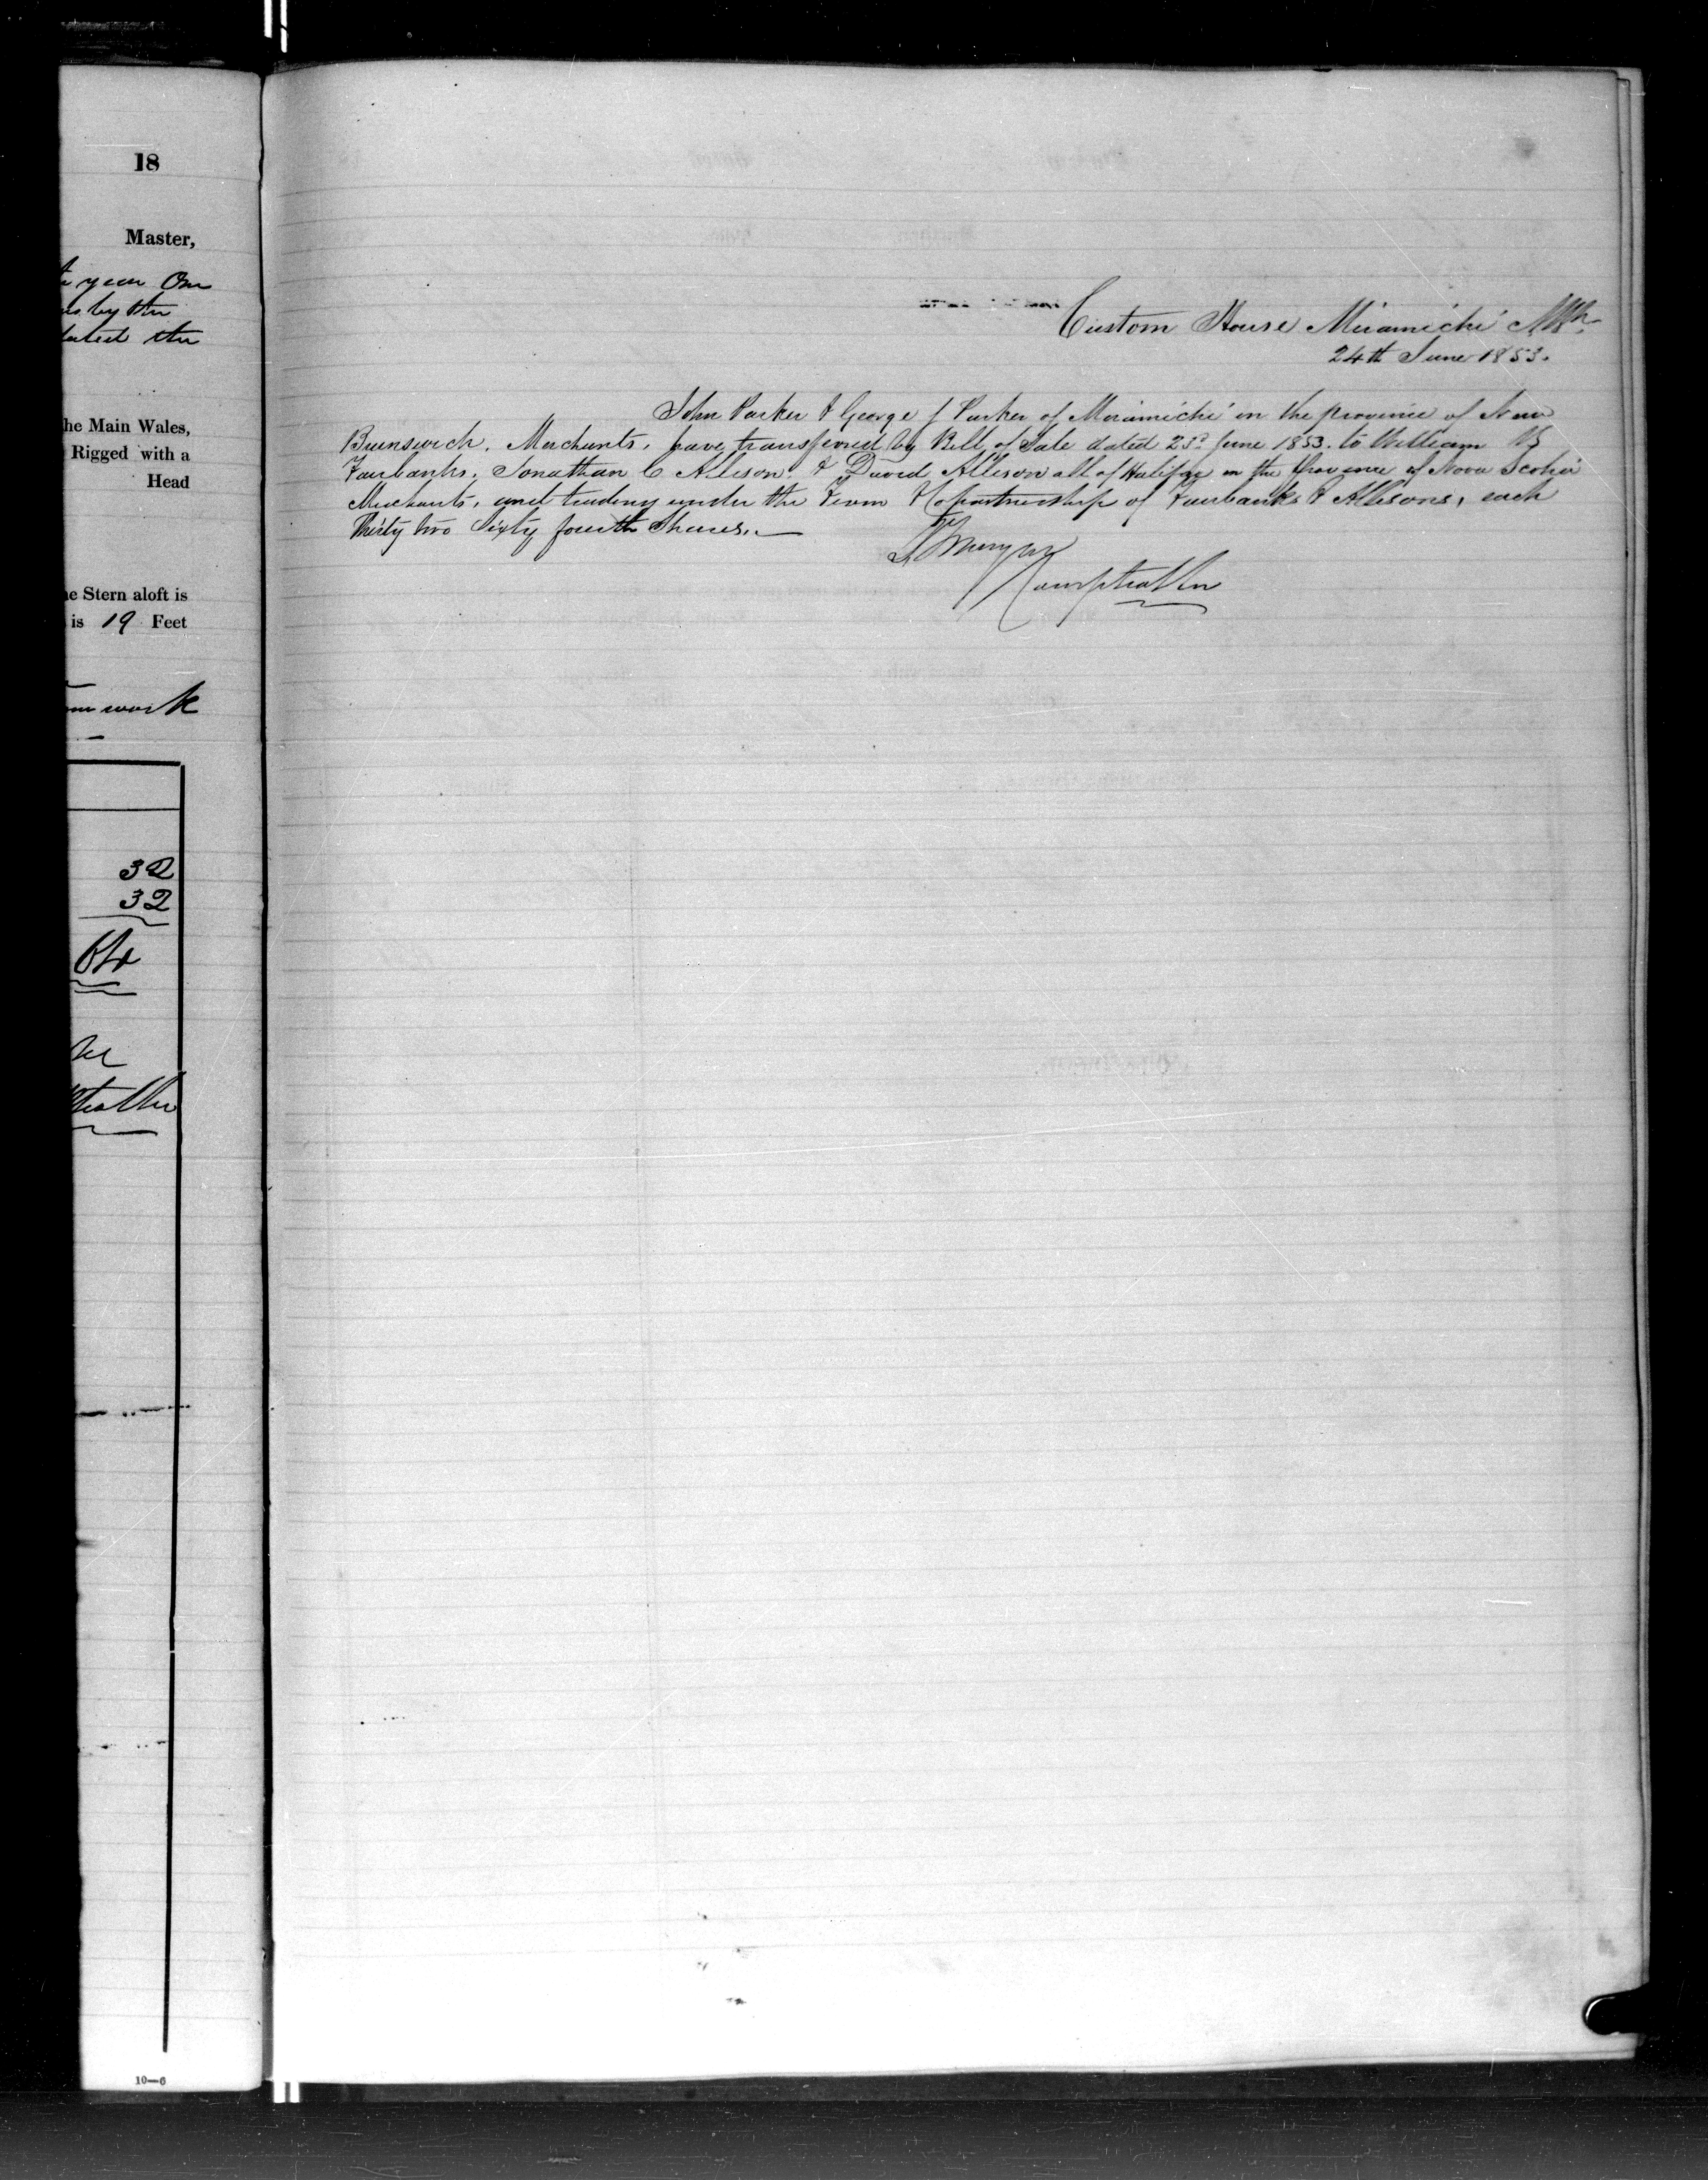 18
Master,
year One
by the
dated the
he Main Wales,
Rigged with a
Head
e Stern aloft is
is 19 Feet
work
32
32
64
10—6
Custom House Miramichi NB
24th June 1853.
John Parker & George J Parker of Miramichi in the province of New
Brunswick, Merchants, have transferred by Bill of Sale dated 23d June 1853. to William
Fairbanks, Jonathan C Allison & David Allison all of Halifax in the Province of Nova Scotia
Merchants, and trading under the Firm & Copartnership of Fairbanks & Allisons, each
Thirty two Sixty fourth Shares.
Comptroller